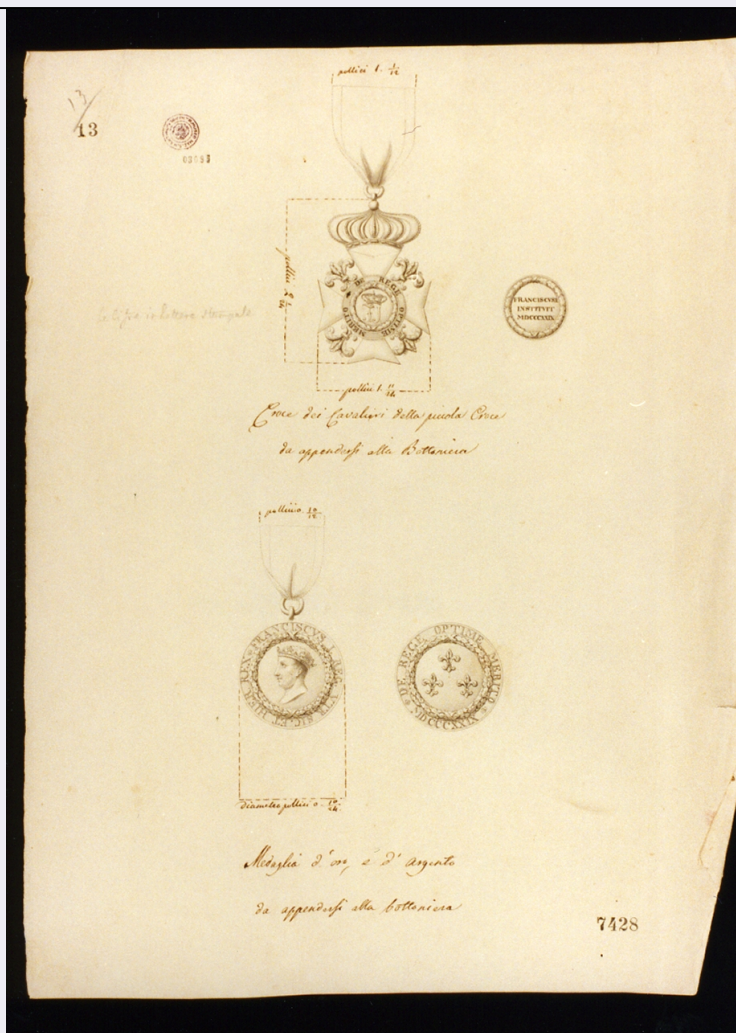 13
13
03093
pollici 1. 1/12
pollici 2
DE REGE OPTIME MERITO
FRANCISCUS I
INSTITUIT
MDCCCXXIX
pollici 1. 11/12
Croce dei Cavalieri della piccola Croce
da appendersi alla Bottoniera
pollici 0. 10/12
FRANCISCVS I REG. VTR. SIC. ET HIER. REX
DE REGE OPTIME MERITO
MDCCCXXIX
diametro pollici 0.
Medaglia d'oro, e d'argento
da appendersi alla bottoniera
7428